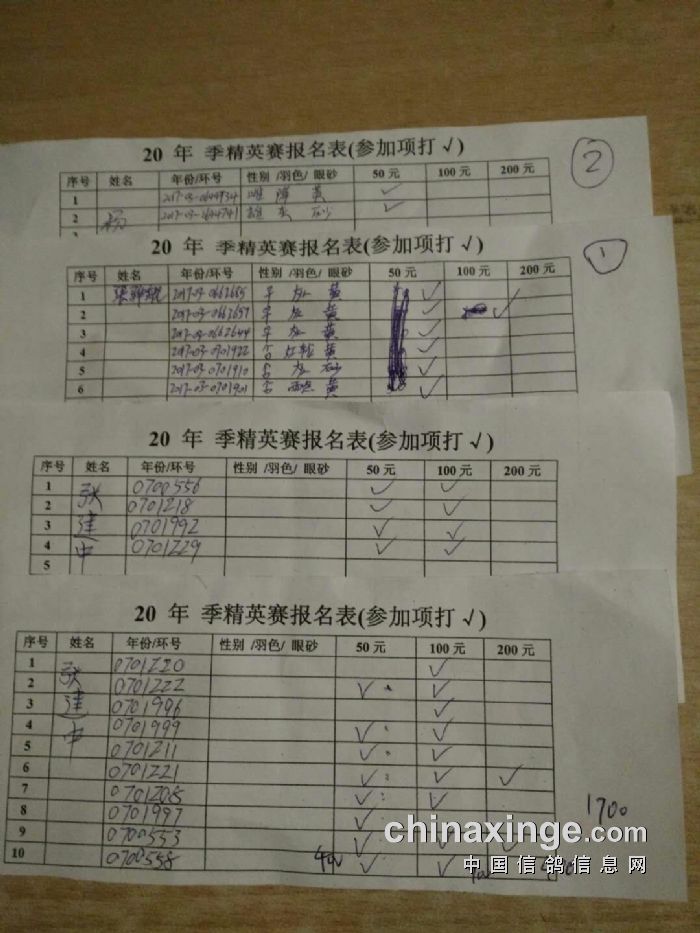 20 年 季精英赛报名表(参加项打 √)
②
序号 姓名 年份/环号 性别 /羽色/ 眼砂 50 元 100 元 200 元
1 2017-03-0644934 雄 黄 ✓
2 杨 2017-03-0644741 雄 灰 砂 ✓
20 年 季精英赛报名表(参加项打 √)
①
序号 姓名 年份/环号 性别 /羽色/ 眼砂 50 元 100 元 200 元
1 张 2017-03-0662685 灰 黄 ✓
2 2017-03-0662657 灰 黄 ✓ ✓
3 2017-03-0662644 灰 黄 ✓
4 2017-03-0701922 红轮 黄 ✓
5 2017-03-0701910 灰 砂 ✓
6 2017-03-0701901 雨点 黄 ✓
20 年 季精英赛报名表(参加项打 √)
序号 姓名 年份/环号 性别 /羽色/ 眼砂 50 元 100 元 200 元
1 张 0700556 ✓ ✓
2 0701218 ✓ ✓
3 建 0701992 ✓ ✓
4 中 0701229 ✓ ✓
5
20 年 季精英赛报名表(参加项打 √)
序号 姓名 年份/环号 性别 /羽色/ 眼砂 50 元 100 元 200 元
1 张 0701220 ✓
2 0701222 ✓ ✓
3 建 0701996 ✓
4 中 0701999 ✓ ✓
5 0701211 ✓ ✓
6 0701221 ✓ ✓ ✓
7 0701208 ✓ ✓
8 0701997 ✓
9 0700553 ✓ ✓ ✓
10 0700558 ✓ ✓
1700
chinaxinge.com
中国信鸽信息网